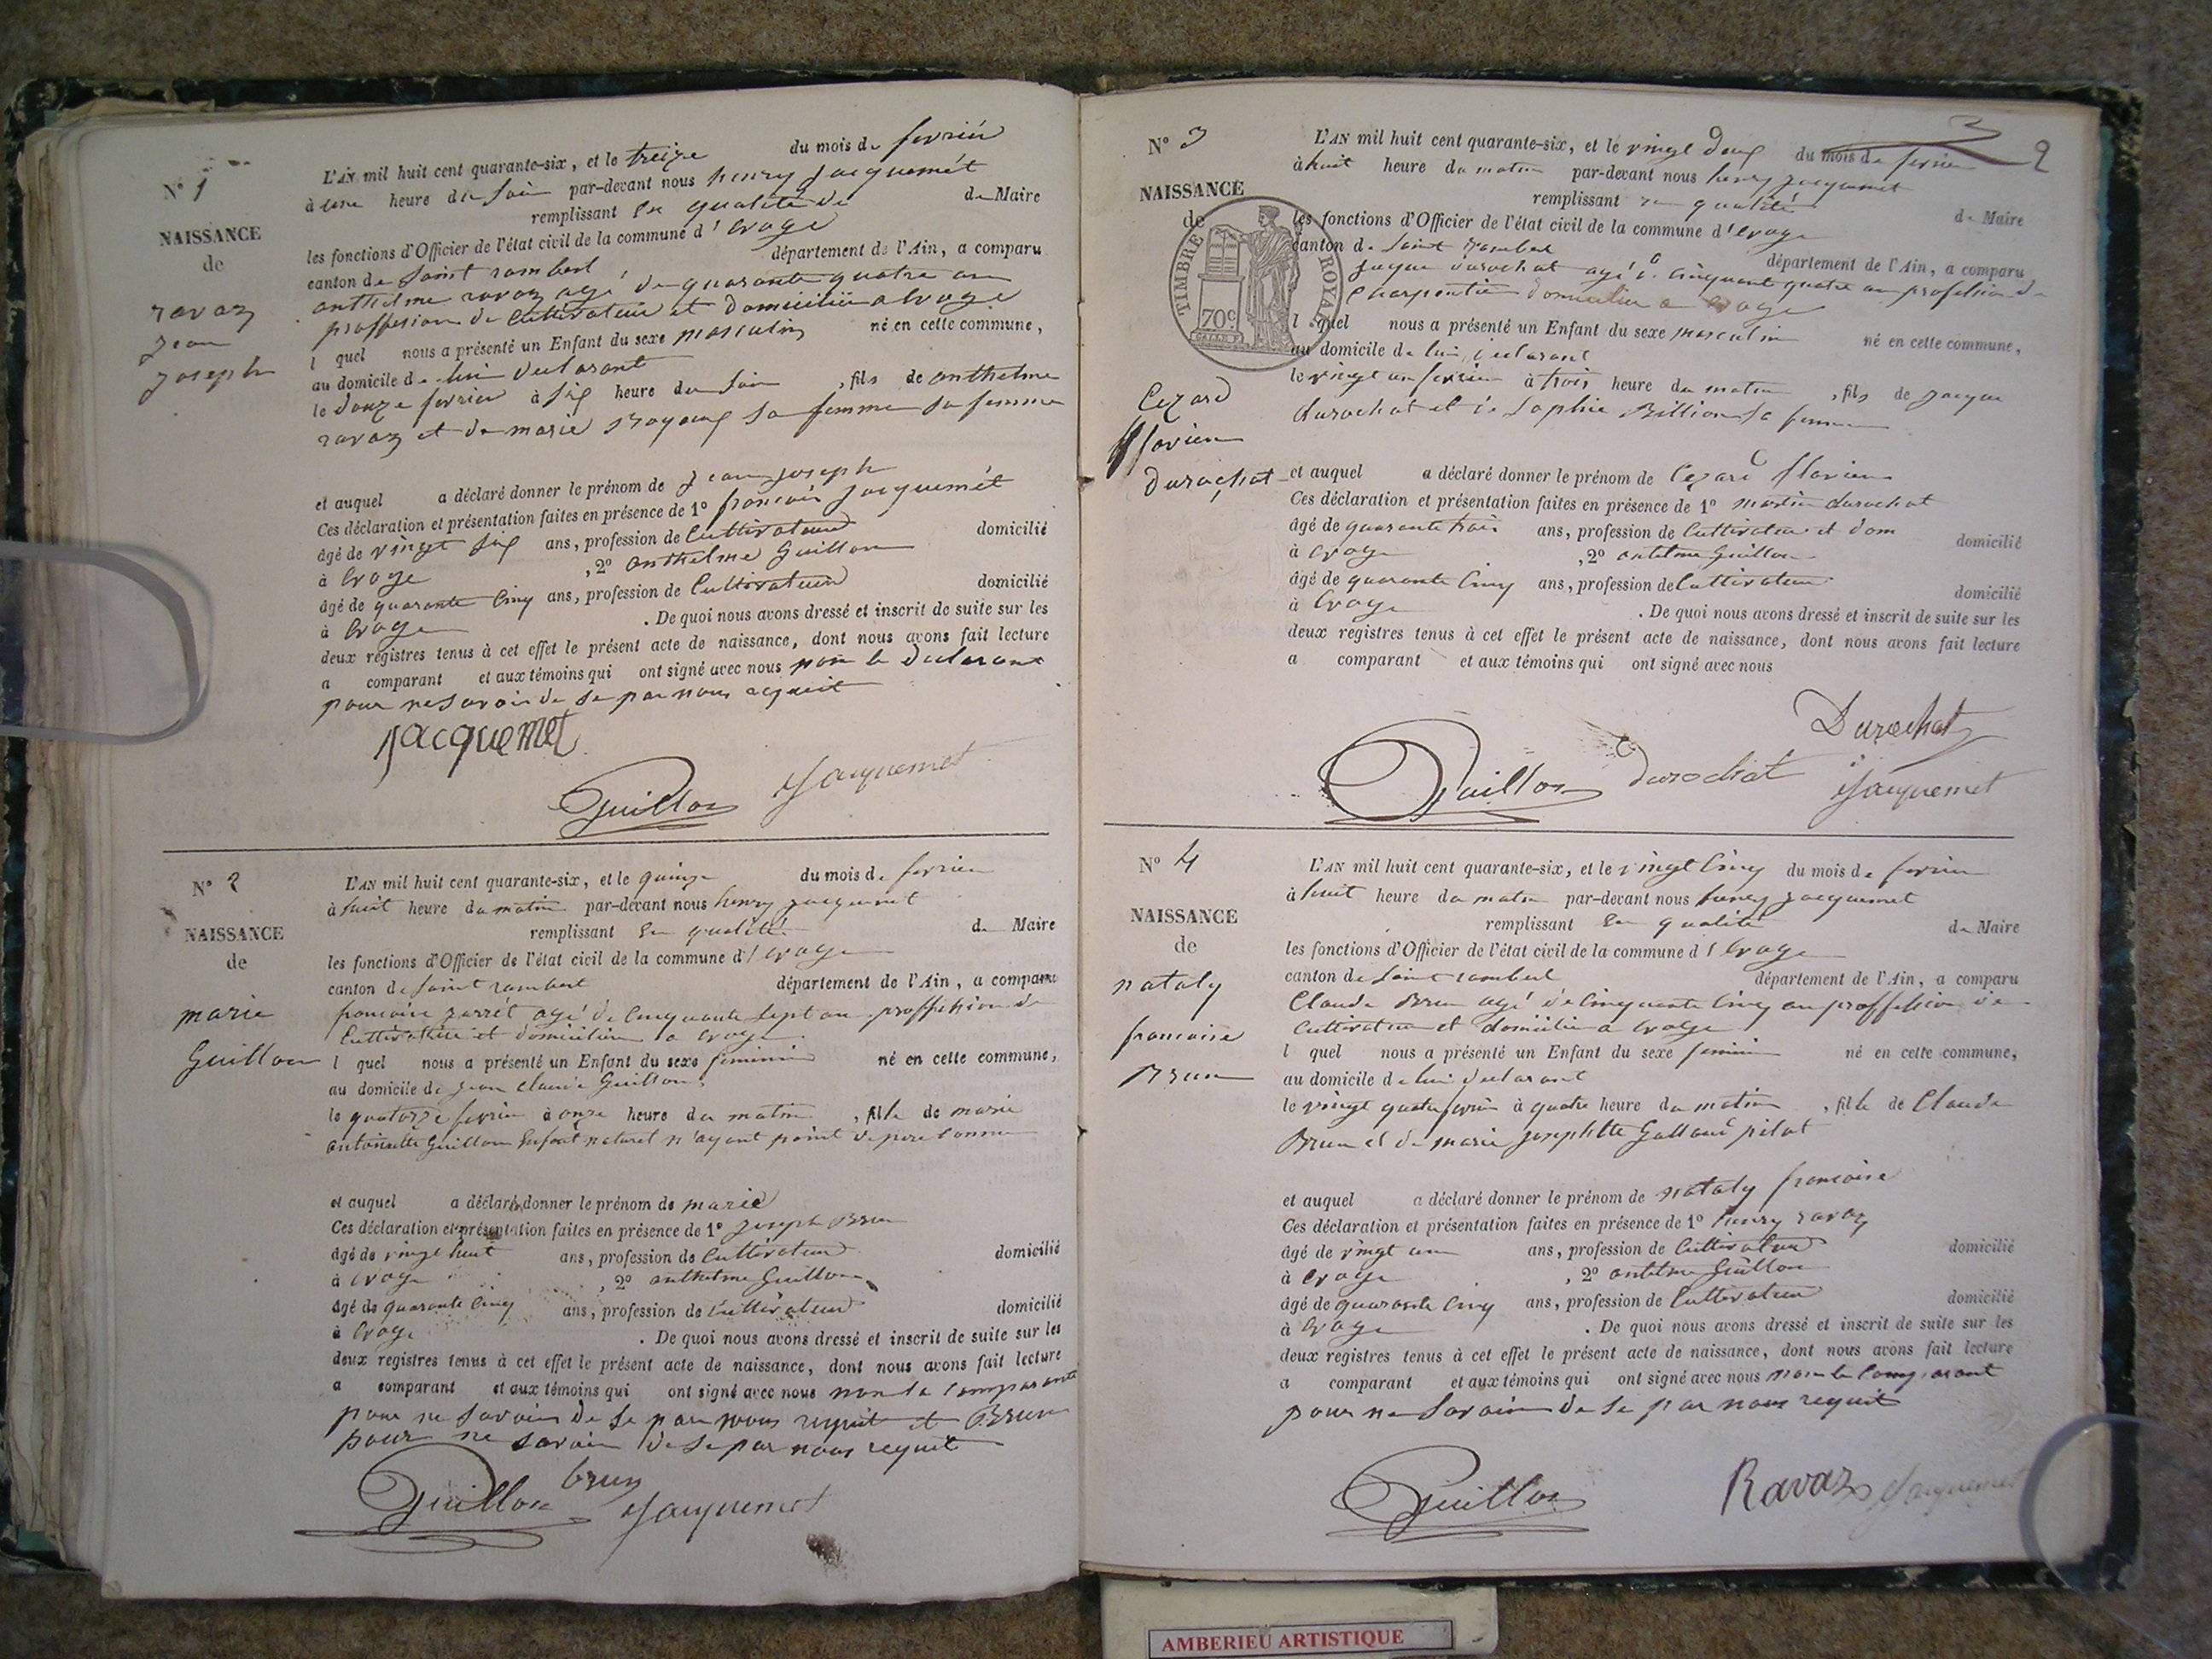 N° 1
NAISSANCE
de
ravaz
jean
joseph
L'AN mil huit cent quarante-six, et le treize du mois de fevrier
à une heure du soir par-devant nous henry jacquemét
remplissant en qualité de de Maire
les fonctions d'Officier de l'état civil de la commune d' evoge
canton de saint rambert département de l'Ain, a comparu
anthelme ravaz agé de quarante quatre an
proffesion de cultivateur et domicilié a evoge
l quel nous a présenté un Enfant du sexe masculin né en cette commune,
au domicile de lui declarant
le douze fevrier à six heure du soir , fils de anthelme
ravaz et de marie sa femme sa femme
et auquel a déclaré donner le prénom de jean joseph
Ces déclaration et présentation faites en présence de 1° francois jacquemét
âgé de vingt six ans, profession de cultivateur domicilié
à evoge , 2° anthelme Guillon
âgé de quarante cinq ans, profession de cultivateur domicilié
à evoge . De quoi nous avons dressé et inscrit de suite sur les
deux registres tenus à cet effet le présent acte de naissance, dont nous avons fait lecture
a comparant et aux témoins qui ont signé avec nous non le declarant
pour ne savoir de se par nous
jacquemet
Guillon Jacquemet
N° 2
NAISSANCE
de
marie
Guillon
L'AN mil huit cent quarante-six, et le quinze du mois de fevrier
à huit heure du matin par-devant nous henry jacquemet
remplissant en qualité de Maire
les fonctions d'Officier de l'état civil de la commune d' evoge
canton de saint rambert département de l'Ain, a comparu
francoise agé de cinquante sept an proffesion de
cultivatrice et domicilié a evoge
l quel nous a présenté un Enfant du sexe feminin né en cette commune,
au domicile de jean claude Guillon
le quatorze fevrier à onze heure du matin , fille de marie
antoinette Guillon enfant naturel n'ayant point de pere connu
et auquel a déclaré donner le prénom de marie
Ces déclaration et présentation faites en présence de 1° joseph Brun
âgé de vingt huit ans, profession de cultivateur domicilié
à evoge , 2° anthelme Guillon
âgé de quarante cinq ans, profession de cultivateur domicilié
à evoge . De quoi nous avons dressé et inscrit de suite sur les
deux registres tenus à cet effet le présent acte de naissance, dont nous avons fait lecture
a comparant et aux témoins qui ont signé avec nous non la comparante
pour ne savoir de se par nous requit et Brun
pour ne savoir de se par nous requit
Guillon brun Jacquemet
3
2
N° 3
NAISSANCE
de
TIMBRE ROYAL
70c
Cezard
florien
durochat
L'AN mil huit cent quarante-six, et le vingt deux du mois de fevrier
à huit heure du matin par-devant nous henry jacquemet
remplissant en qualité de Maire
les fonctions d'Officier de l'état civil de la commune d' evoge
canton de saint rambert département de l'Ain, a comparu
jaque durochat agé de cinquant quatre an profession de
charpentier domicilié a evoge
l quel nous a présenté un Enfant du sexe masculin né en cette commune,
au domicile de lui declarant
le vingt un fevrier à trois heure du matin , fils de jacque
durochat et de sophie Billion sa femme
et auquel a déclaré donner le prénom de Cezard florien
Ces déclaration et présentation faites en présence de 1° martin durochat
âgé de quarante trois ans, profession de cultivateur et dom domicilié
à evoge , 2° antelme Guillon
âgé de quarante cinq ans, profession de cultivateur domicilié
à evoge . De quoi nous avons dressé et inscrit de suite sur les
deux registres tenus à cet effet le présent acte de naissance, dont nous avons fait lecture
a comparant et aux témoins qui ont signé avec nous
Durochat
Guillon durochat Jacquemet
N° 4
NAISSANCE
de
nataly
francoise
Brun
L'AN mil huit cent quarante-six, et le vingt cinq du mois de fevrier
à huit heure du matin par-devant nous henry jacquemet
remplissant en qualité de Maire
les fonctions d'Officier de l'état civil de la commune d evoge
canton de saint rambert département de l'Ain, a comparu
Claude Brun agé de cinquante cinq an proffession de
cultivateur et domicilié a evoge
l quel nous a présenté un Enfant du sexe feminin né en cette commune,
au domicile de lui declarant
le vingt quatre fevrier à quatre heure du matin , fille de Claude
Brun et de marie josephtte pilot
et auquel a déclaré donner le prénom de nataly francoise
Ces déclaration et présentation faites en présence de 1° henry ravaz
âgé de vingt un ans, profession de cultivateur domicilié
à evoge , 2° antelme Guillon
âgé de quarante cinq ans, profession de cultivateur domicilié
à evoge . De quoi nous avons dressé et inscrit de suite sur les
deux registres tenus à cet effet le présent acte de naissance, dont nous avons fait lecture
a comparant et aux témoins qui ont signé avec nous non le comparant
pour ne savoir de se par nous requit
Guillon Ravaz Jacquemet
AMBERIEU ARTISTIQUE